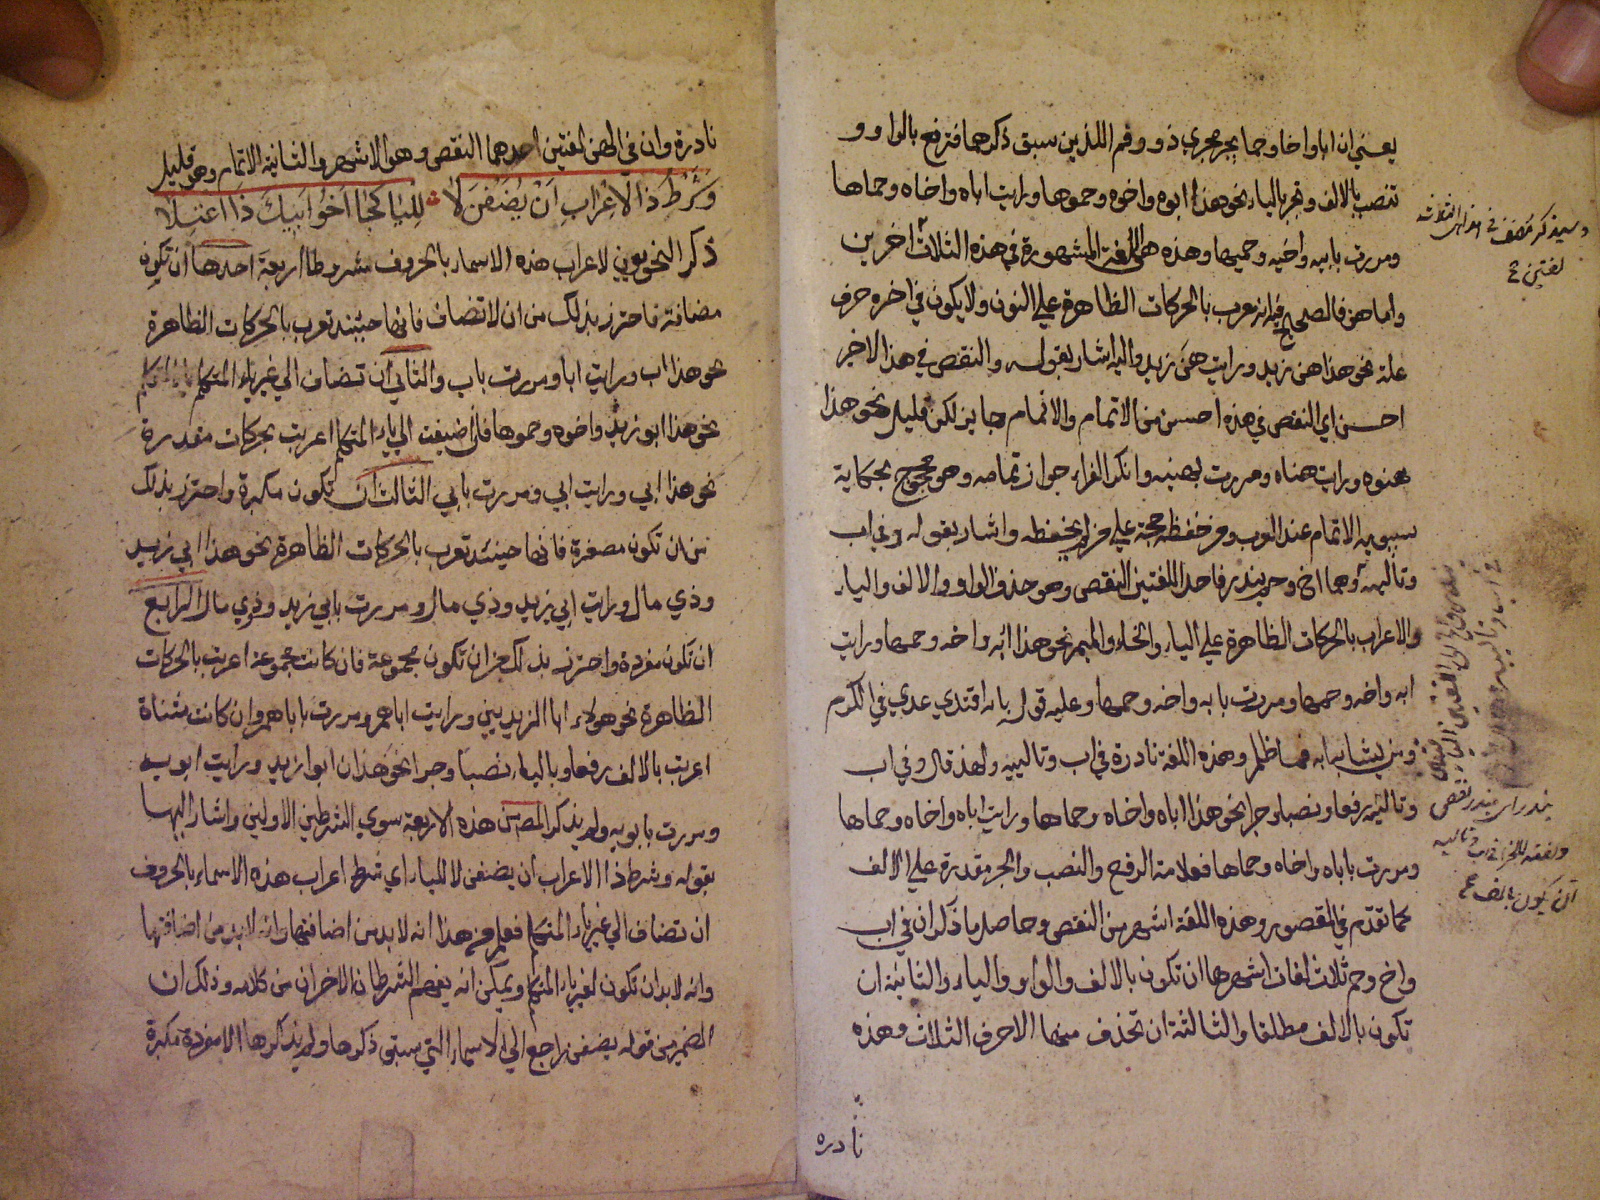 يعني ان ابا واخا وحما يجر مجري ذو وفم اللذين سبق ذكرهما فترفع بالواو و
تنصب بالالف وتجر بالياء نحو هذا ابوه واخوه وحموها ورايت اباه واخاه وحماها
ومررت بابيه واخيه وحميها وهذه هي اللغة المشهورة في هذه الثلاث اخرين
واما هن فالصحيح فيه انه عرب بالحركات الظاهرة علي النون ولا يكون في اخره حرف
علة نحو هذا هن زيد ورايت هن زيد واليه اشار بقوله والنقص في هذا الاخر
احسن اي النقص في هذه احسن من الاتمام والاتمام جايز لكن قليل نحو هذا
هنوه ورايت هناه ومررت بهنيه وانكر الفراء جواز تمامه وهو محجوج بحكاية
سيبويه الاتمام عند العرب ومن حفظ حجة علي من لم يحفظه واشار بقوله وفي اب
وتالييه وهما اخ وحم يندر فاحد اللغتين النقص وهو حذف الواو والالف والياء
والاعراب بالحركات الظاهرة علي الباء والخاء والميم نحو هذا ابه واخه وحمها ورايت
ابه واخه وحمها ومررت بابه واخه وحمها وعليه قوله بابه اقتدي عدي في الكرم
ومن يشابه ابه فما ظلم وهذه اللغة نادرة في اب وتالييه ولهذ قال وفي اب
وتالييه رفعا ونصبا وجرا نحو هذا اباه واخاه وحماها ورايت اباه واخاه وحماها
ومررت باباه واخاه وحماها فعلامة الرفع والنصب والجر مقدرة علي الالف
كما تقدم في المقصور وهذه اللغة اشهر من النقص وحاصل ما ذكر ان في اب
واخ وحم ثلاث لغات اشهرها ان تكون بالالف والواو والياء والثانية ان
تكون بالالف مطلقا والثالثة ان تحذف منها الاحرف الثلاث وهذه
نادره
وسيذكر مصنف في هذه الثلاثة
لغتين
يندر اي يندر نقص
نادرة وان في الهن لغتين احدهما النقص وهو الاشهر والثانية الاتمام وهو قليل
وَشَرْطُ ذَا الاِعْرَابِ اَنْ يُضَفْنَ لَا لِليَا كَجَا اَخُو اَبِيكَ ذَا اعْتِلَا
ذكر النحويون لاعراب هذه الاسماء بالحروف شروطا اربعة احدها ان تكون
مضافة فاحترز بذلك من ان لا تضاف فانها حينئذ تعرب بالحركات الظاهرة
نحو هذا اب ورايت ابا ومررت باب والثاني ان تضاف الي غير ياء المتكلم
نحو هذا ابو زيد واخوه وحموها فان اضيفت الي ياء المتكلم اعربت بحركات مقدرة
نحو هذا ابي ورايت ابي ومررت بابي الثالث ان تكون مكبرة واحترز بذلك
من ان تكون مصغرة فانها حينئذ تعرب بالحركات الظاهرة نحو هذا ابي زيد
وذي مال ورايت ابي زيد وذي مال ومررت بابي زيد وذوي مال الرابع
ان تكون مفردة واحترز بذلك عن ان تكون مجموعة فان كانت مجموعة اعربت بالحركات
الظاهرة نحو هولاء ابا الزيديين ورايت اباهم ومررت باباهم وان كانت مثناة
اعربت بالالف رفعا وبالياء نصبا وجرا نحو هذان ابوا زيد ورايت ابويه
ومررت بابويه ولم يذكر المص من هذه الاربعة سوي الشرطين الاولين واشار اليهما
بقوله وشرط ذا الاعراب ان يضفن لا للياء اي شرط اعراب هذه الاسماء بالحروف
ان تضاف الي غير ياء المتكلم فعلم من هذا انه لا بد من اضافتها وانه لا بد من اضافتها
وانه لا بد ان تكون لغير ياء المتكلم ويمكن ان يفهم الشرطان الاخران من كلامه وذلك ان
الضمير من قوله يضفن راجع الي الاسماء التي سبق ذكرها ولم يذكرها الا مفردة مكبرة